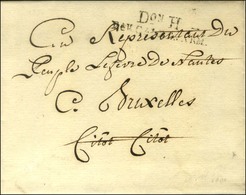 Don H
Cn Représentant du
Peuple Lefevre de Nantes
a Bruxelles
Citot Citot